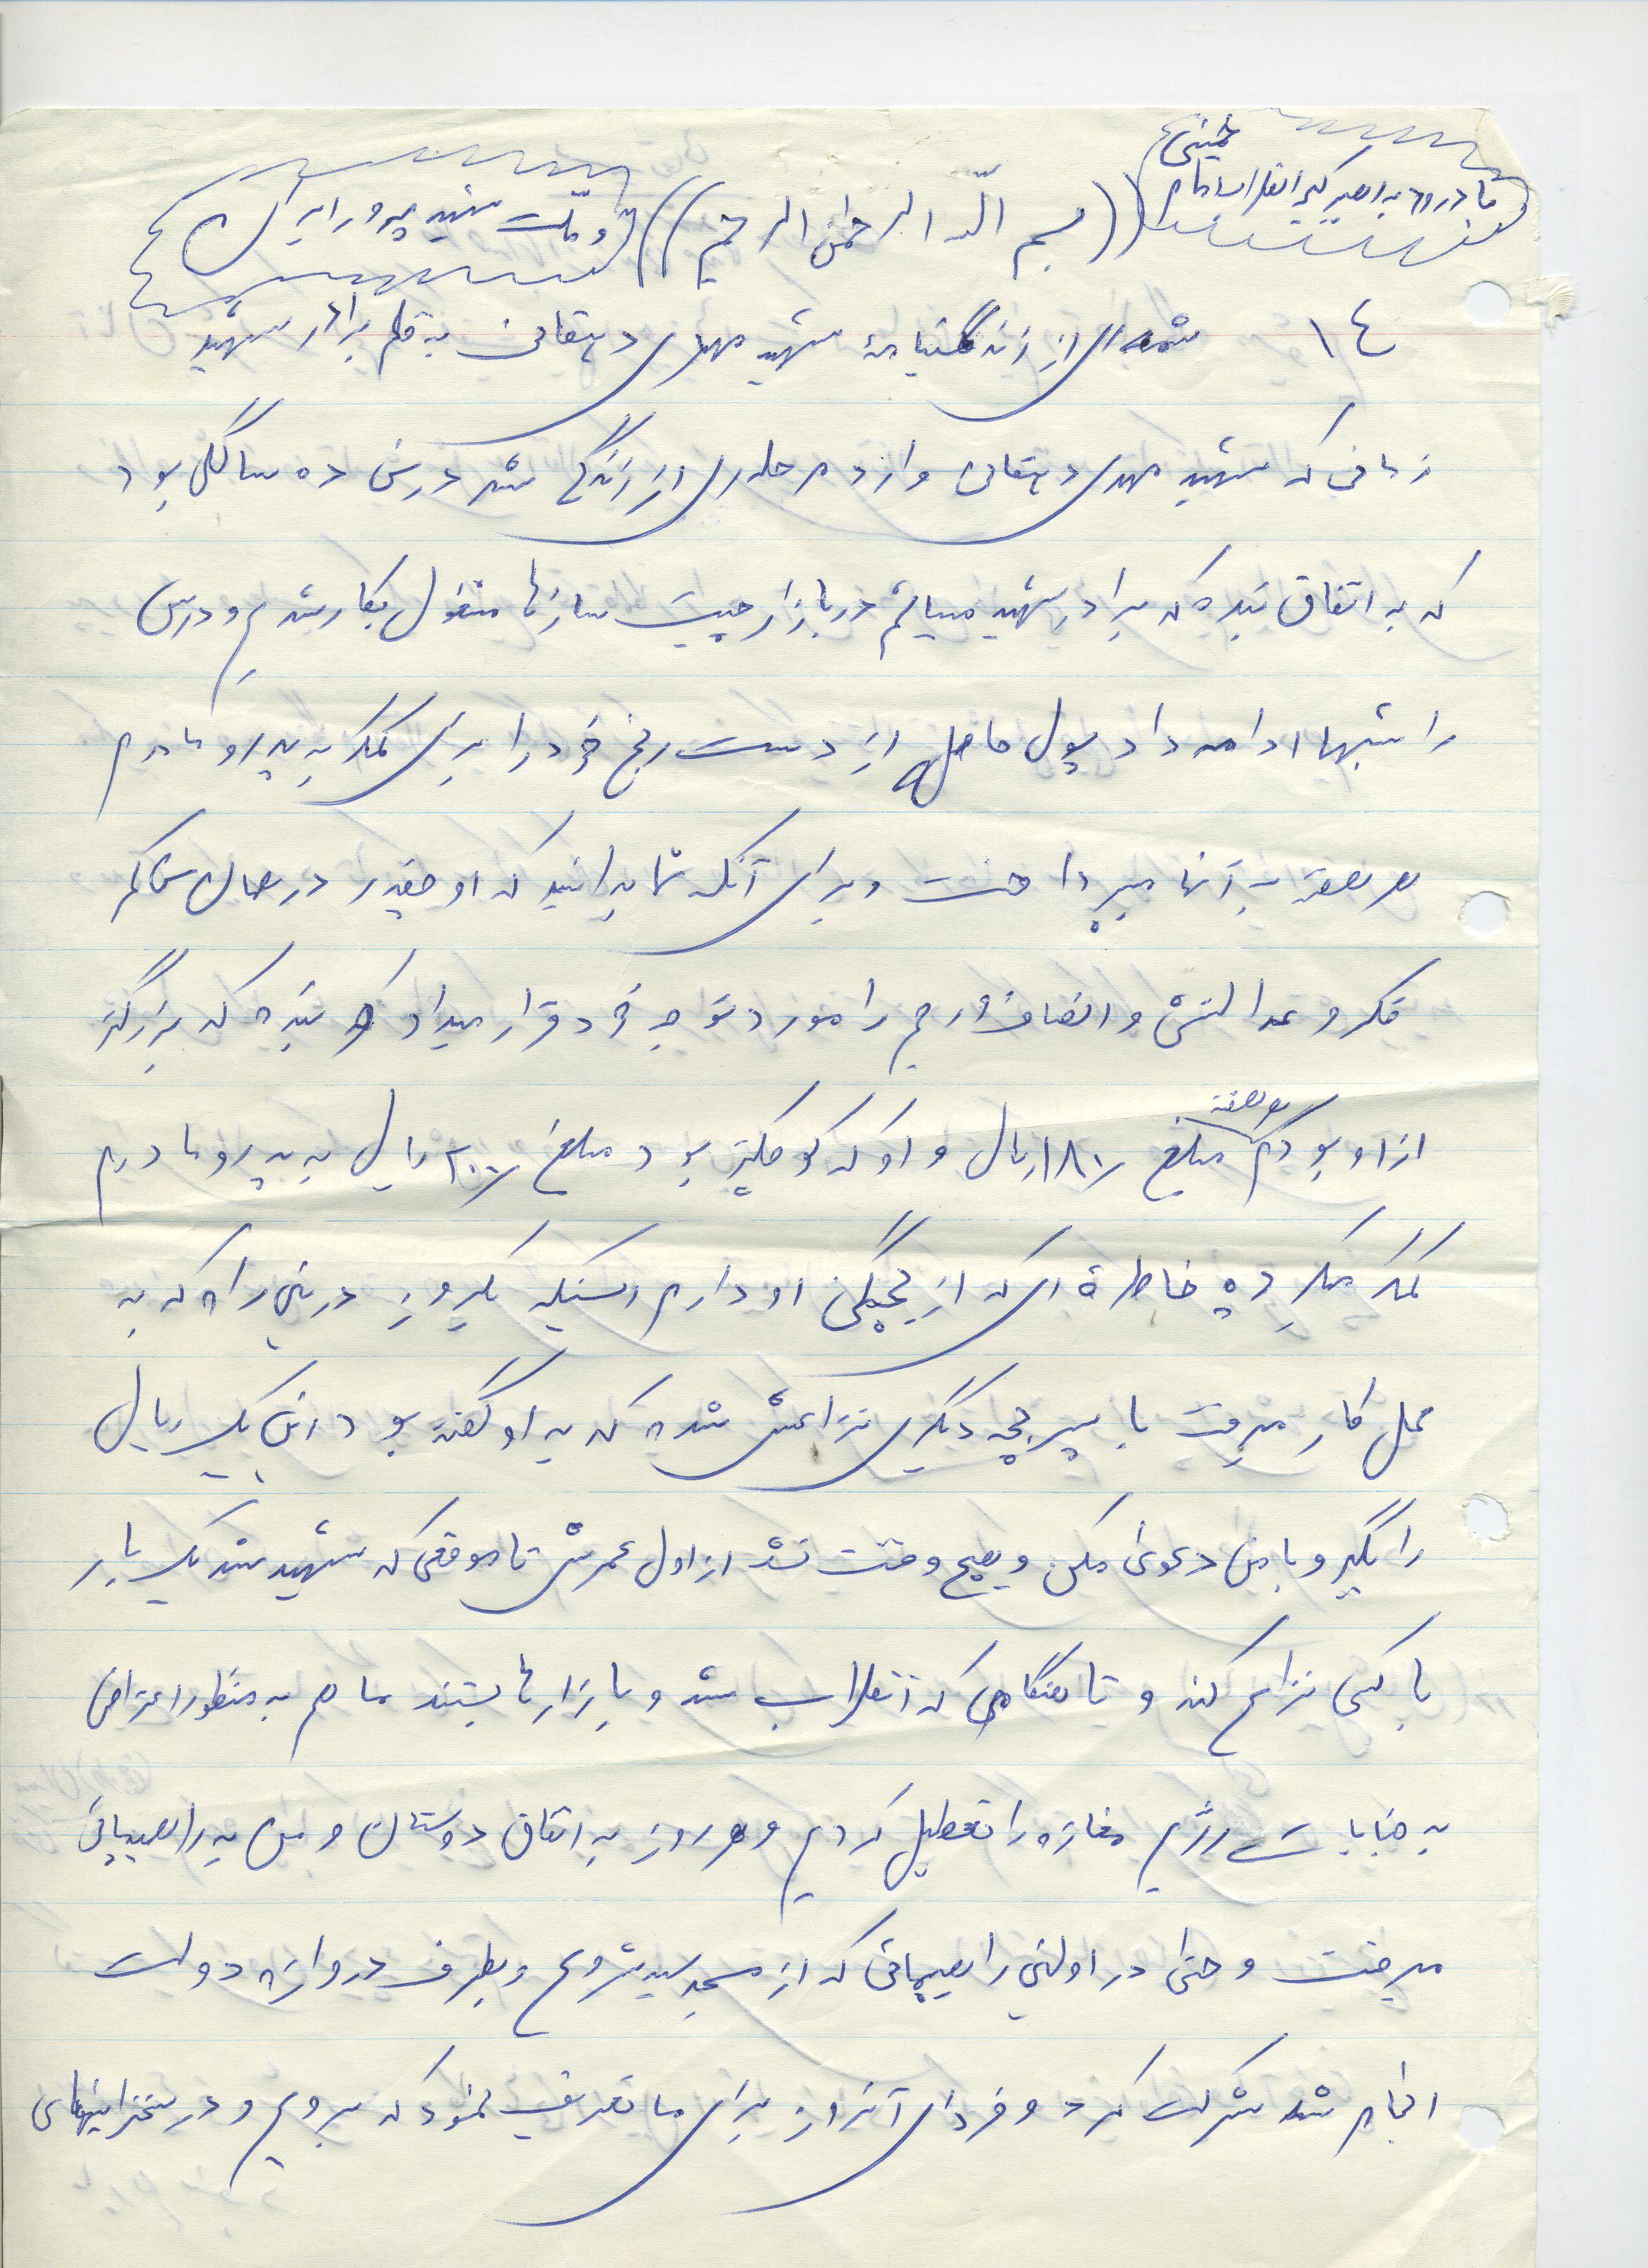 با درود به رهبر کبیر انقلاب امام خمینی
((بسم الله الرحمن الرحیم))
و ملت شهید پرور ایران
۱۴ شمه ای از زندگینامهٔ شهید مهدی دهقانی به قلم برادر شهید
زمانی که شهید مهدی دهقانی وارد مرحله ای از زندگی شد درسن ده سالگی بود
که به اتفاق بنده که برادر شهید میباشم در بازار چیت سازها مشغول بکار شدیم و درس
را شبها ادامه داد پول حاصل از دست رنج خود را برای کمک به پدر و مادرم
هر هفته به آنها میپرداخت و برای آنکه شما بدانید که او چقدر در همان سن کم
فکر و عدالتش و انصاف و رحم را مورد توجه خود قرار میداد بنده که بزرگتر
از او بودم هر هفته مبلغ ۱۸۰ ریال و او که کوچکتر بود مبلغ ۲۰۰ ریال به پدر و مادرم
کمک میکرده خاطرهٔ ای که از بچگی او دارم اینکه یکروز در بین راه که به
محل کار میرفت با پسر بچه دیگری نزاعش شده که به او گفته بود این یک ریال
را بگیر و با من دعوی مکن و هیچ وقت نشد از اول عمرش تا موقعی که شهید شد یک بار
با کسی نزاع کند و تا هنگامی که انقلاب شد و بازارها بستند ما هم به منظور اعتراض
به جنایات رژیم مغازه را تعطیل کردیم و هر روز به اتفاق دوستان و من به راهپیمائی
میرفت و حتی در اولین راهپیمائی که از مسجد سید شروع و بطرف دروازه دولت
انجام شد شرکت کرد و فردای آنروز برای ما تعریف نمود که برویم و در سخنرانیهای